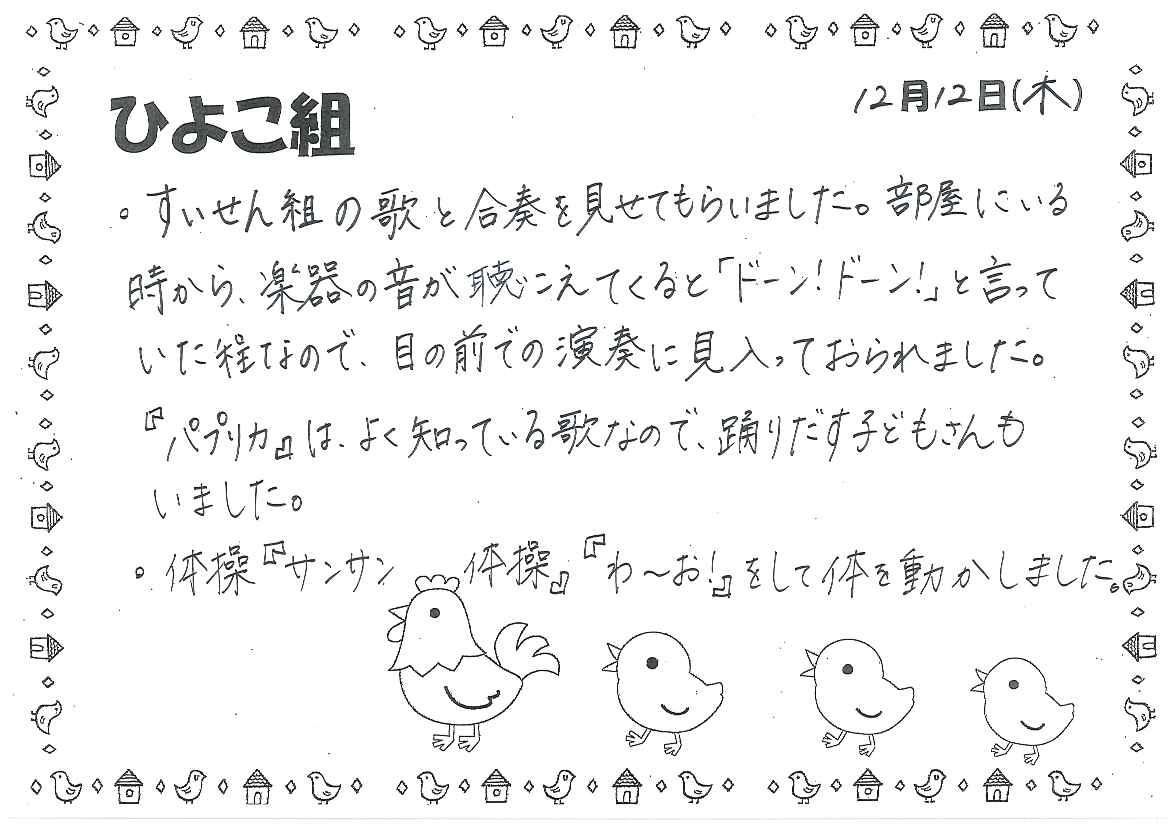 ひよこ組
12月12日(木)
。すいせん組の歌と合奏を見せてもらいました。部屋にいる
時から、楽器の音が聴こえてくると「ドーン!ドーン!」と言って
いた程なので、目の前での演奏に見入っておられました。
『パプリカ』は、よく知っている歌なので、踊りだす子どもさんも
いました。
。体操『サンサン 体操』『わ〜お!』をして体を動かしました。